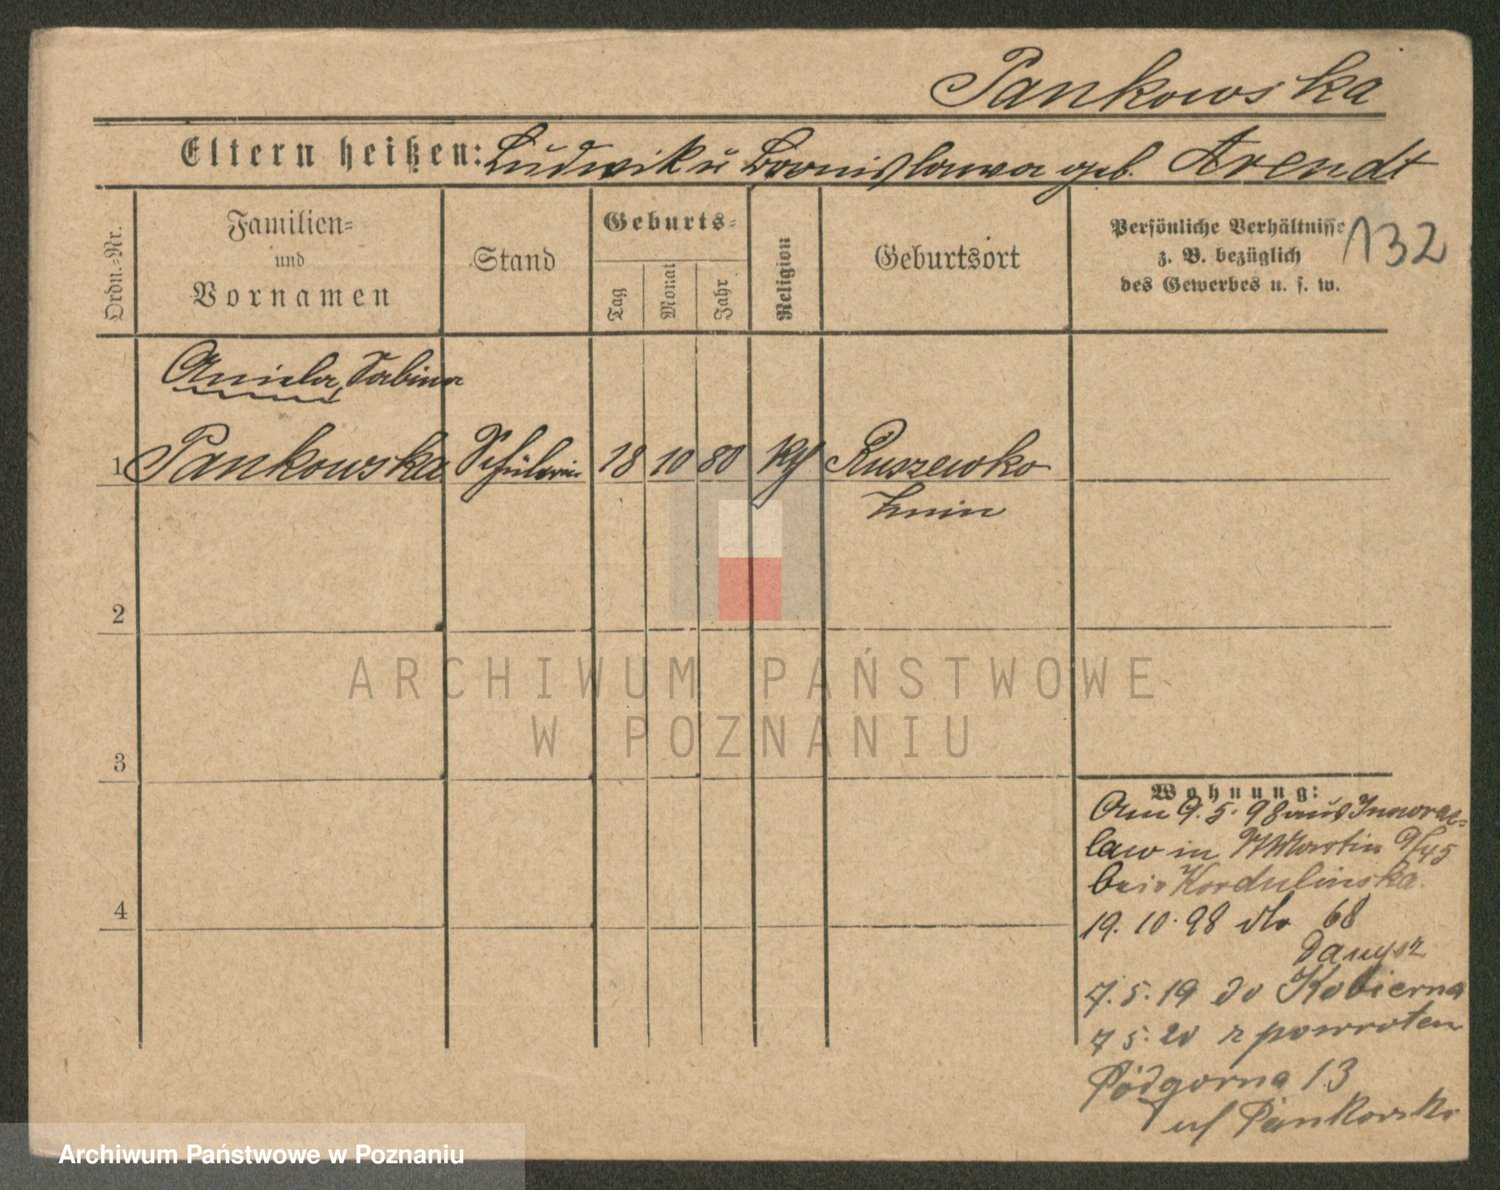 Pankowska
Eltern heißen: Ludwik u Bronislawa geb. Arendt
Ordn.-Nr.
Familien-
und
Vornamen
Stand
Geburts-
Tag
Monat
Jahr
Religion
Geburtsort
Persönliche Verhältnisse
z. B. bezüglich
des Gewerbes u. s. w.
132
Aniela, Sabina
1 Pankowska Schülerin 18 10 80 Ruszewko
Znin
2
3
4
ARCHIWUM PAŃSTWOWE
W POZNANIU
Wohnung:
Am 9.5.98 aus Inowraz-
law in Martin
bei Kordulinska.
19.10.98 dto 68
Danysz
7.5.19 do Kobierna
7 5.20 z powroten
Podgorna 13
Archiwum Państwowe w Poznaniu